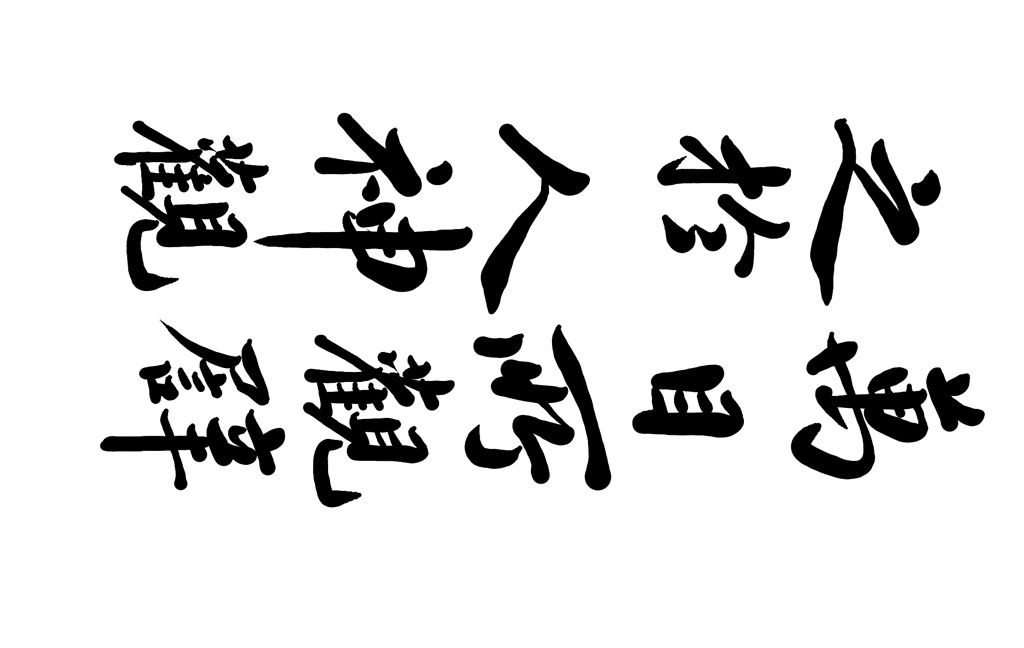 萬目所觀譬
之於人神觀